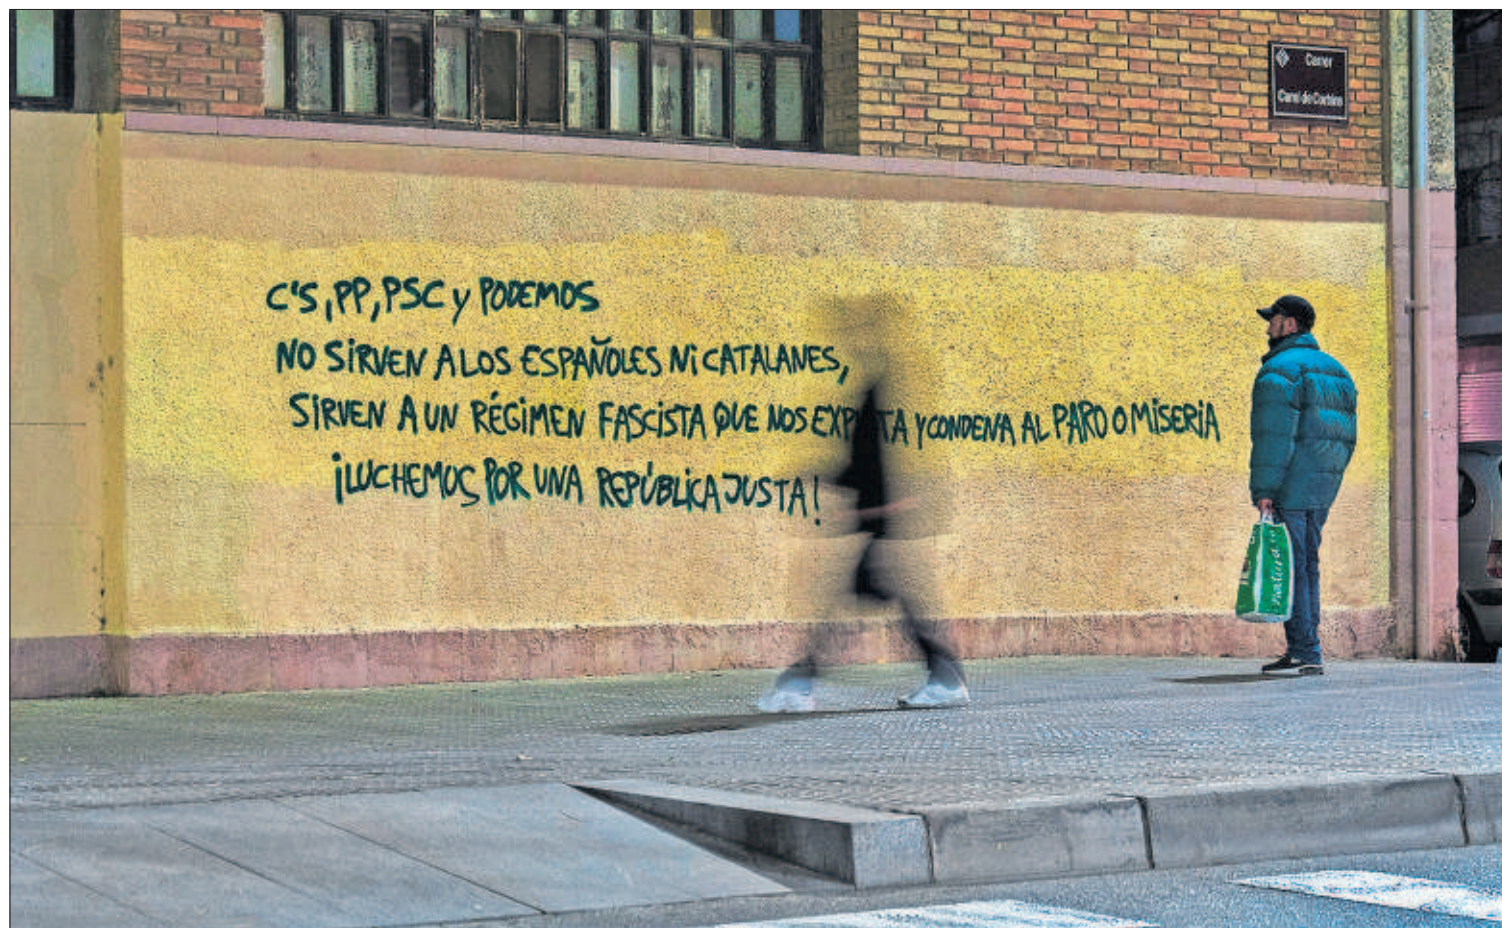 Carrer
Camí de Corbins
C'S, PP, PSC y PODEMOS
NO SiRVEN A LOS ESPAÑOLES Ni CATALANES,
SiRVEN A UN RÉGIMEN FASCiSTA QUE NOS EXPLOTA Y CONDENA AL PARO O MiSERiA
¡LUCHEMOS POR UNA REPÚBLiCA JUSTA!
natura